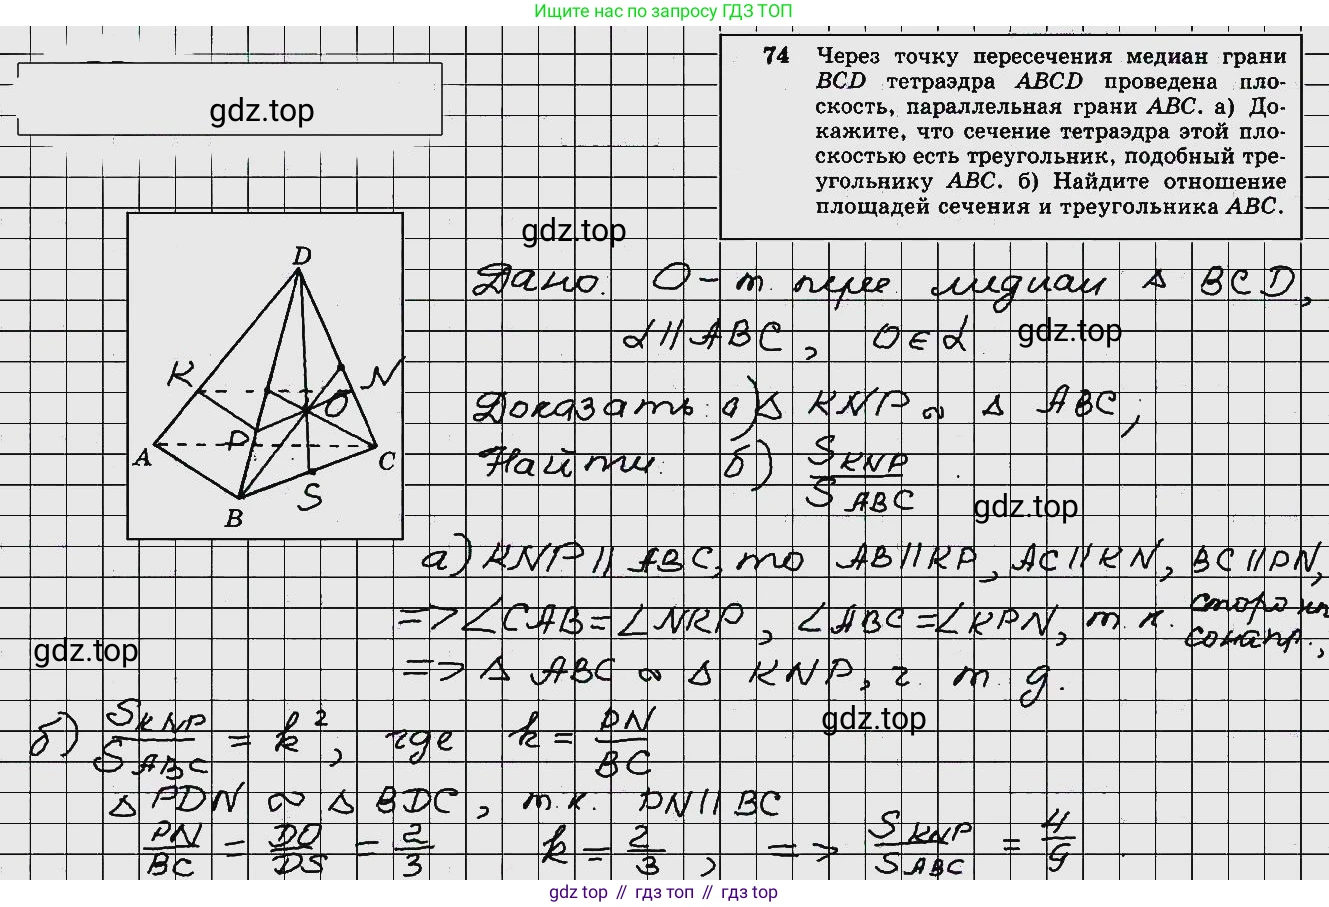 Ищите нас по запросу ГДЗ ТОП
gdz.top
74 Через точку пересечения медиан грани
BCD тетраэдра ABCD проведена пло-
скость, параллельная грани ABC. а) До-
кажите, что сечение тетраэдра этой пло-
скостью есть треугольник, подобный тре-
угольнику ABC. б) Найдите отношение
площадей сечения и треугольника ABC.
gdz.top
D
K
N
O
P
A
C
S
B
Дано: O - т. пере. медиан △ BCD,
α || ABC, O ∈ α
gdz.top
Доказать: а) △ KNP ∾ △ ABC;
Найти: б) S KNP / S ABC
gdz.top
а) KNP || ABC, то AB || KP, AC || KN, BC || PN,
=> ∠CAB = ∠NKP, ∠ABC = ∠KPN, т.к. сторон
сонапр.,
gdz.top
=> △ ABC ∾ △ KNP, ч. т. д.
gdz.top
б) S KNP / S ABC = k², где k = PN / BC
△ PDN ∾ △ BDC, т.к. PN || BC
PN / BC = DO / DS = 2 / 3 k = 2 / 3, => S KNP / S ABC = 4 / 9
gdz top // гдз топ // gdz top